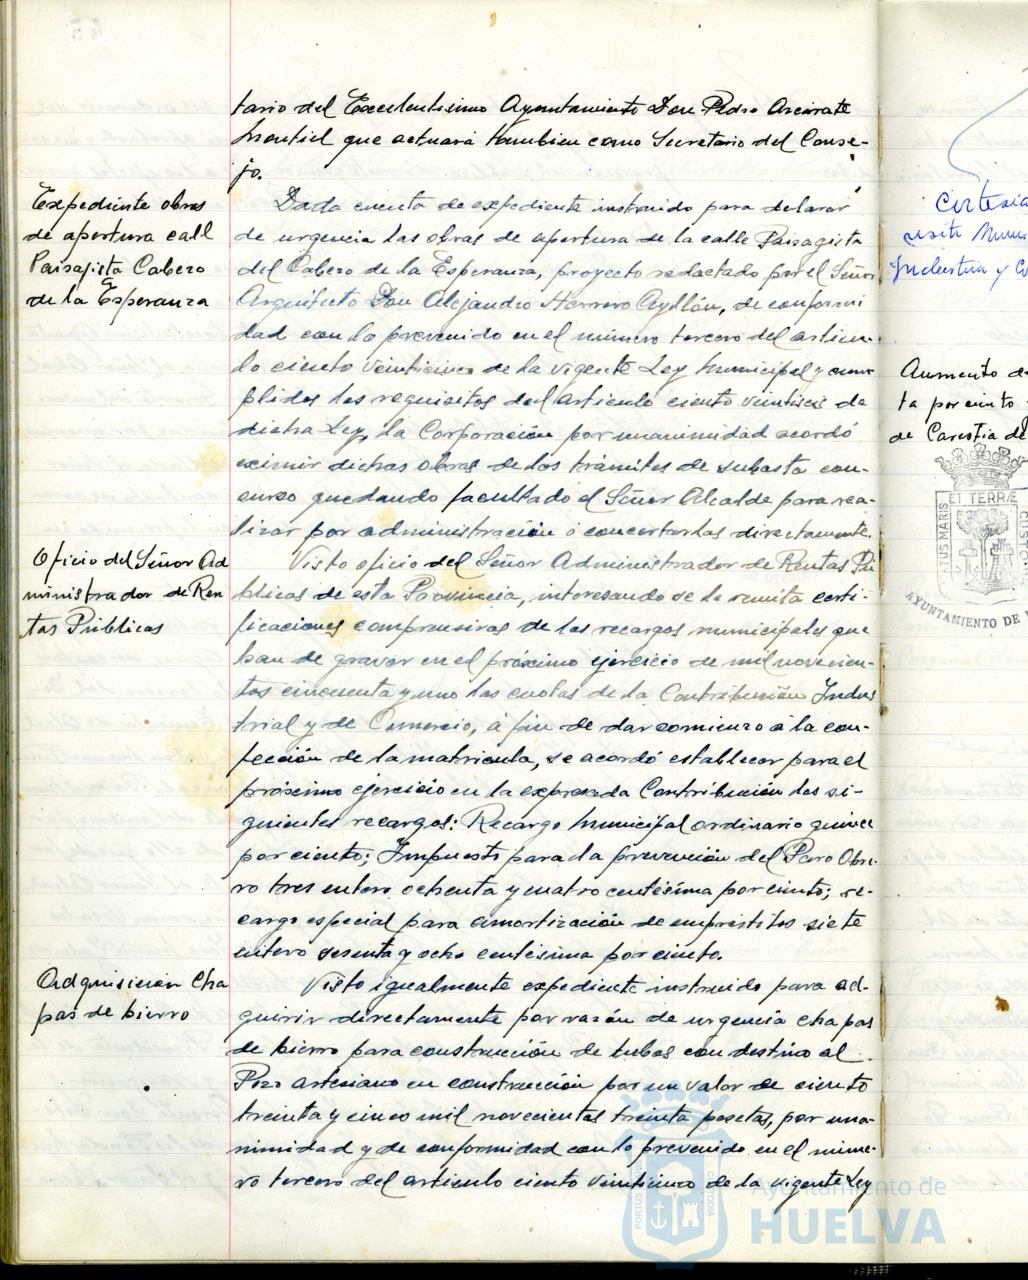 tario del Excelentisimo Ayuntamiento Don Pedro Azcárate
Montiel que actuará tambien como Secretario del Conse-
jo.
Expediente obras
de apertura call
Paisajista Cabezo
de la Esperanza
Dada cuenta de expediente instruido para declarar
de urgencia las obras de apertura de la calle Paisagista
del Cabezo de la Esperanza, proyecto redactado por el Señor
Arquitecto Don Alejandro Herrero Ayllón, de conformi
dad con lo prevenido en el número tercero del articu-
lo ciento veinticinco de la vigente Ley Municipal y cum-
plidos los requisitos del articulo ciento veintiseis de
dicha Ley, la Corporación por unanimidad acordó
eximir dichas obras de los trámites de subasta con-
curso quedando facultado el Señor Alcalde para rea-
lizar por administración o concertarlas directamente.
Oficio del Señor Ad
ministrador de Ren
tas Públicas
Visto oficio del Señor Administrador de Rentas Pú
blicas de esta Provincia, interesando se le remita certi-
ficaciones comprensivas de los recargos municipales que
han de gravar en el próximo ejercicio de mil novecien-
tos cincuenta y uno las cuotas de la Contribución Indus
trial y de Comercio, á fin de dar comienzo á la con-
fección de la matricula, se acordó establecer para el
próximo ejercicio en la expresada Contribución los si-
guientes recargos: Recargo Municipal ordinario quince
por ciento; Impuesto para la prevención del Paro Obre-
ro tres entero ochenta y cuatro centésima por ciento; re-
cargo especial para amortización de empréstitos siete
entero sesenta y ocho centésima por ciento.
Adquisicion Cha
pas de hierro
Visto igualmente expediente instruido para ad-
quirir directamente por razón de urgencia chapas
de hierro para construcción de tubos con destino al
Pozo artesiano en construcción por un valor de ciento
treinta y cinco mil novecientas treinta pesetas, por una-
nimidad y de conformidad con lo prevenido en el núme-
ro tercero del articulo ciento veinticinco de la vigente Ley
Cortesia
visita
Industria y Co
Aumento de
ta por ciento
de Carestia de
PORTUS MARIS ET TERRÆ CUSTODIA
AYUNTAMIENTO DE
Ayuntamiento de
HUELVA